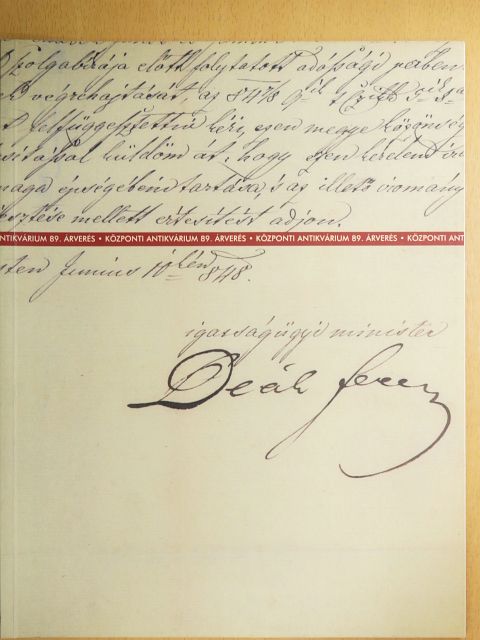 szolgabirája előtt folytatott adóssági perben
végrehajtását, az 848
felfüggesztetni kéri, ezen megye közönség
sítással küldöm át, hogy ezen kérelmet
maga épségében tartása, s az illető iromány
esztése mellett értesítést adjon.
NTIKVÁRIUM 89. ÁRVERÉS • KÖZPONTI ANTIKVÁRIUM 89. ÁRVERÉS • KÖZPONTI ANTIKVÁRIUM 89. ÁRVERÉS • KÖZPONTI ANT
sten Junius 10kén 848.
igazságügyi minister
Deák Ferencz